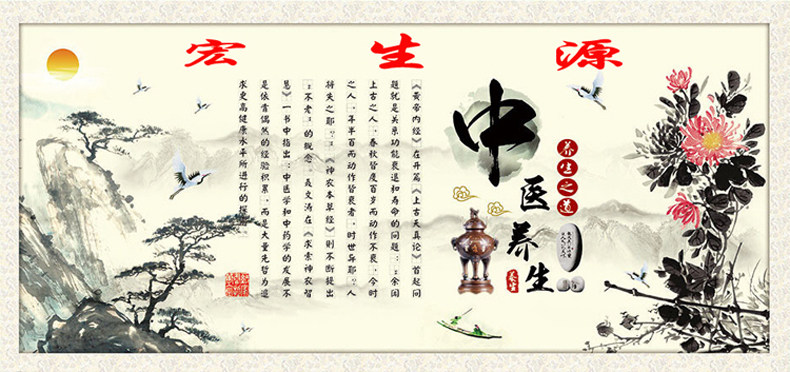 宏生源
中医养生
养生之道
养生
《黄帝内经》在开篇《上古天真论》首起问
题就是关系功能衰退和寿命的问题："余闻
上古之人，春秋皆度百岁而动作不衰，今时
之人，年半百而动作皆衰者，时世异耶？人
将失之耶？"《神农本草经》则不断提出
"不老"的概念。聂文涛在《求索神农智
慧》一书中指出：中医学和中药学的发展不
是依靠偶然的经验积累，而是大量先哲为追
求更高健康水平所进行的探